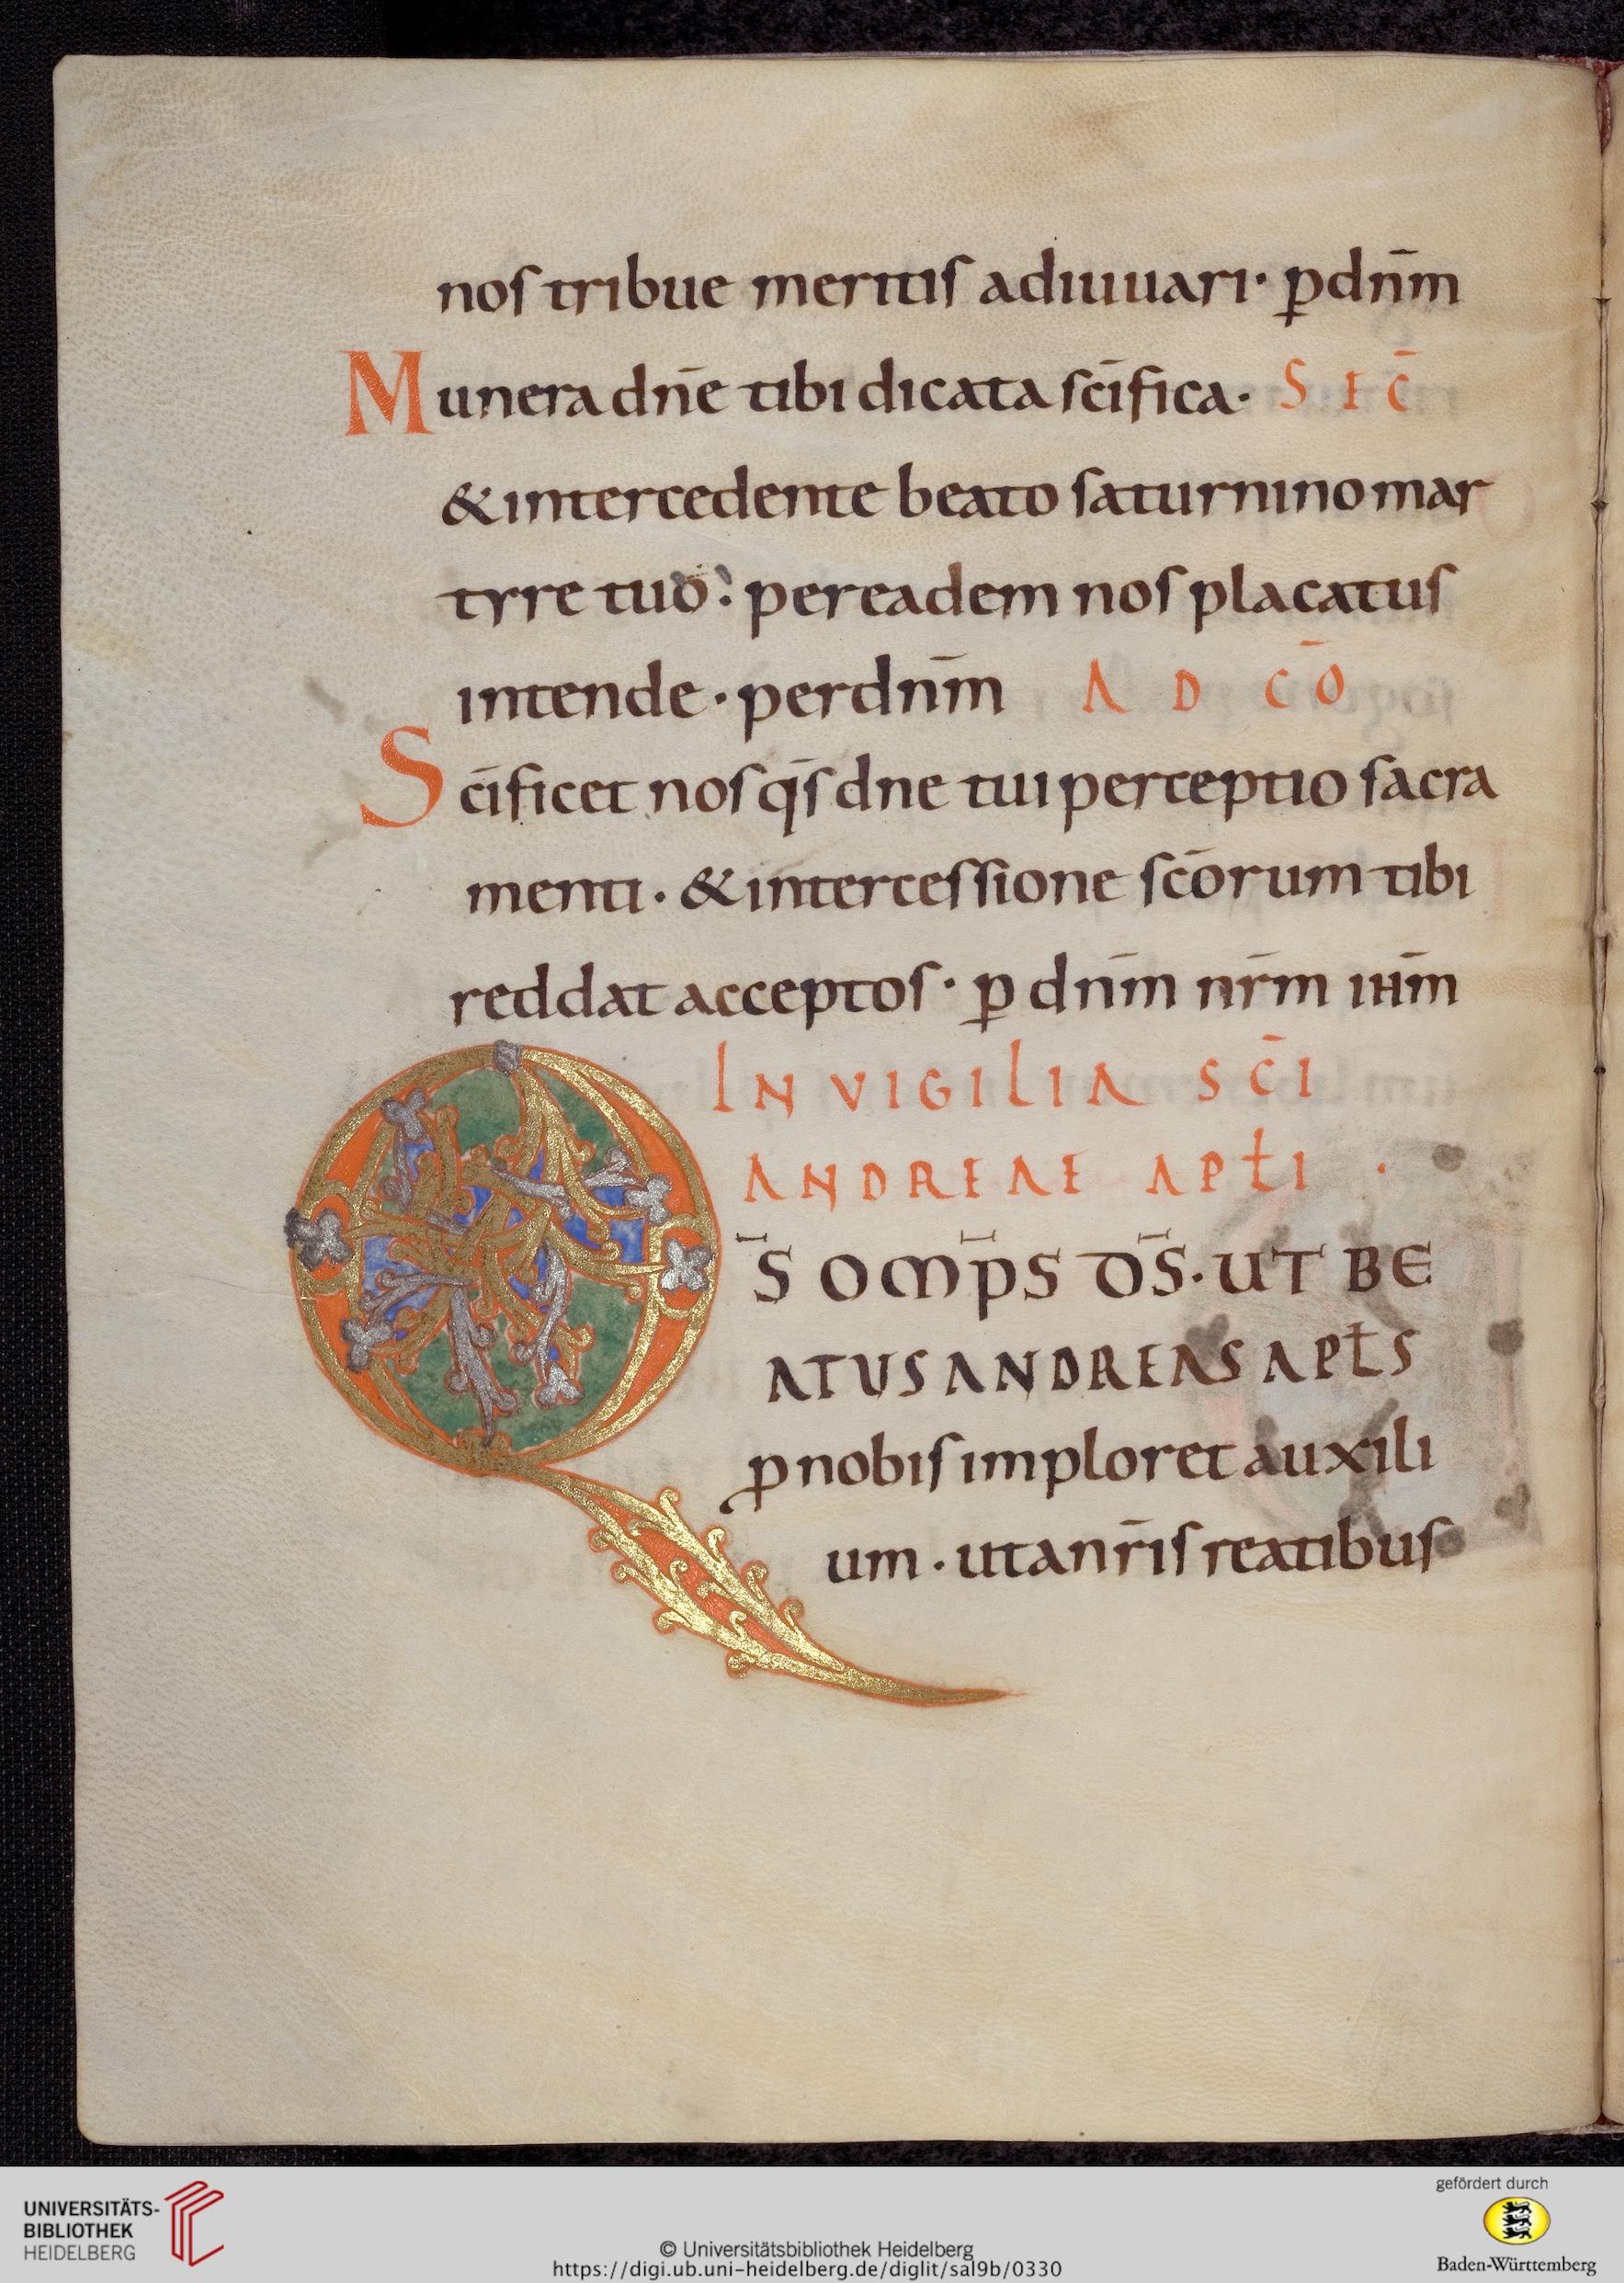 nos tribue meritis adiuuari · p̲ dnm̄
Munera dnē tibi dicata scīfica · SEC̄
& intercedente beato saturnino mar
tyre tuo : per eadem nos placatus
intende · per dnm̄ AD CŌ
Scīficet nos qs̄ dne tui perceptio sacra
menti · & intercessione scōrum tibi
reddat acceptos · p̲ dnm̄ nrm̄ ihm̄
IN VIGILIA SC̄I
ANDREAE APŁI ·
QS̄ OMP̄S DS̄ · UT BE
ATUS ANDREAS APŁS
p nobis imploret auxili
um · ut a nr̄is reatibus
UNIVERSITÄTS-
BIBLIOTHEK
HEIDELBERG
© Universitätsbibliothek Heidelberg
https://digi.ub.uni-heidelberg.de/diglit/sal9b/0330
gefördert durch
Baden-Württemberg